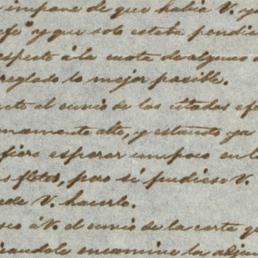 impone de que habia V. y
efe y que solo estaba pendie
especto á la cuota de algunos
reglado lo mejor posible.
cto el envio de las citadas ef
mamente alto, y estando ya
fiero esperar un poco en l
s fletos, pero si pudiese V.
ede V. hacerlo.
eo á V. el envio de la carta q
icandole encamine la adjun